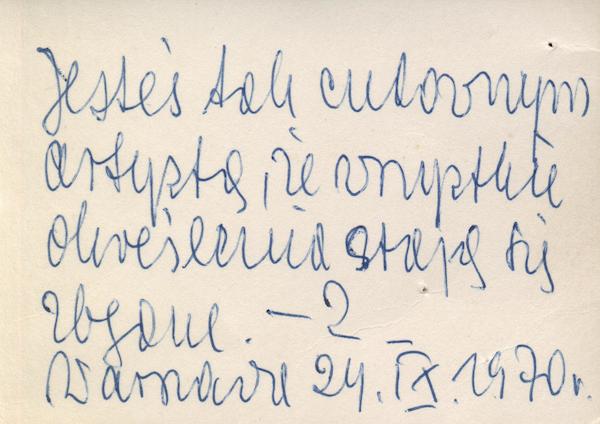 Jesteś tak cudownym
artystą, że wszystkie
określenia stają się
zbędne. —
Warszawa 24.IX.1970r.